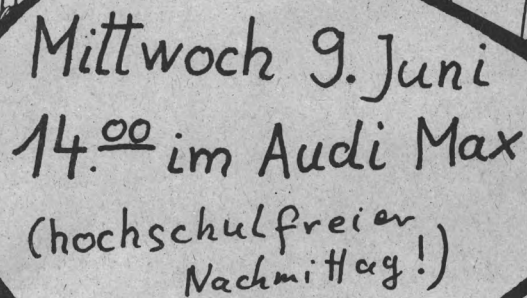 Mittwoch 9. Juni
14.00 im Audi Max
(hochschulfreier
Nachmittag!)